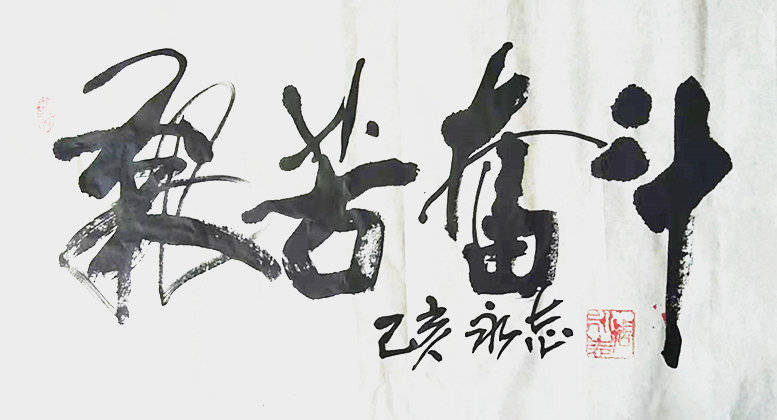 艰苦奋斗
己亥 永志